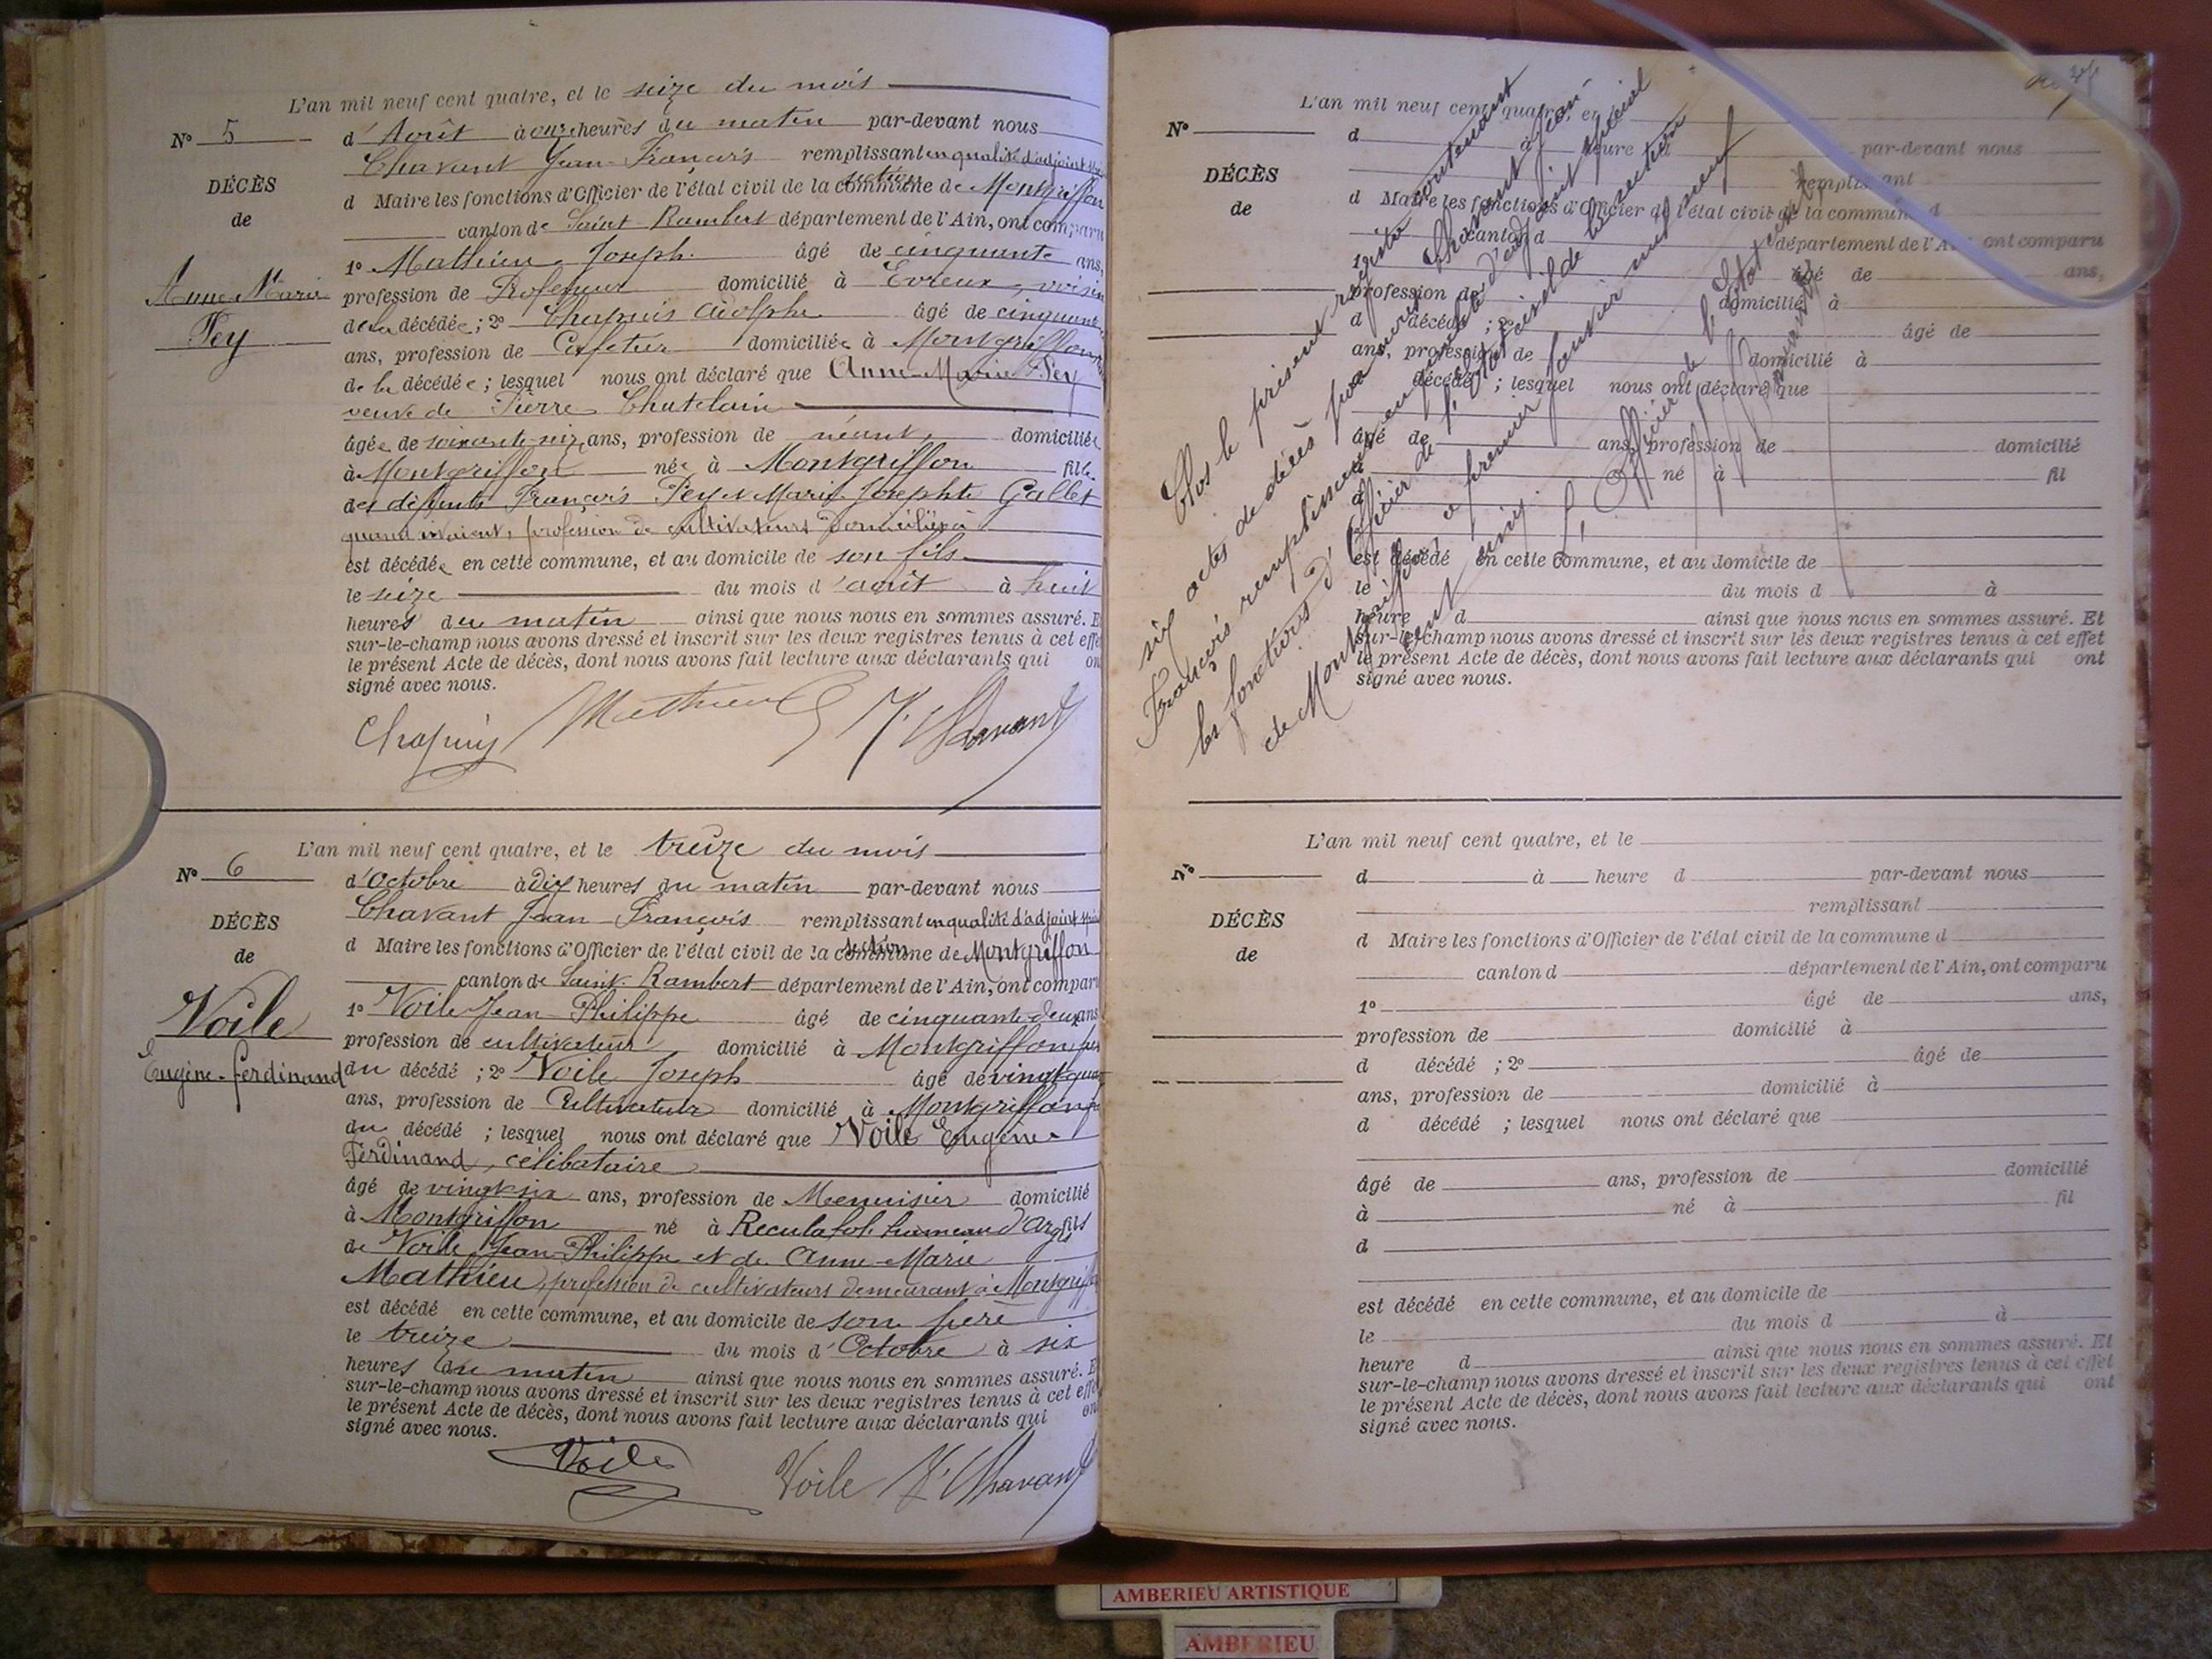 L'an mil neuf cent quatre, et le seize du mois
N° 5
d'Août à onze heures du matin par-devant nous
Chavant Jean-François remplissant en qualité d'adjoint
DÉCÈS
d Maire les fonctions d'Officier de l'état civil de la commune section de Montgriffon
de
canton de Saint Rambert département de l'Ain, ont comparu
1° Mathieu Joseph âgé de cinquante ans,
Anne-Marie
Pey
profession de Professeur domicilié à Evreux, voisin
de la décédée ; 2° Chapuis Adolphe âgé de cinquante
ans, profession de Cafetier domicilié à Montgriffon
de la décédée ; lesquel nous ont déclaré que Anne-Marie Pey
veuve de Pierre Chatelain
âgée de soixante-seize ans, profession de néant, domiciliée
à Montgriffon née à Montgriffon fille
des défunts François Pey et Marie Josephte Gallet
quand vivaient, profession de cultivateurs domiciliés à
est décédée en cette commune, et au domicile de son fils
le seize du mois d'août à huit
heures du matin ainsi que nous nous en sommes assuré. E
sur-le-champ nous avons dressé et inscrit sur les deux registres tenus à cet effe
le présent Acte de décès, dont nous avons fait lecture aux déclarants qui on
signé avec nous.
Chapuis Mathieu F. Chavant
L'an mil neuf cent quatre, et le treize du mois
N° 6
d'Octobre à dix heures du matin par-devant nous
Chavant Jean-François remplissant en qualité d'adjoint
DÉCÈS
d Maire les fonctions d'Officier de l'état civil de la commune section de Montgriffon
de
canton de Saint-Rambert département de l'Ain, ont comparu
Voile
Eugène-ferdinand
1° Voile Jean Philippe âgé de cinquante-deux ans
profession de cultivateur domicilié à Montgriffon
du décédé ; 2° Voile Joseph âgé de vingt
ans, profession de Cultivateur domicilié à Montgriffon
du décédé ; lesquel nous ont déclaré que Voile Eugène
Ferdinand, célibataire
âgé de vingt six ans, profession de Menuisier domicilié
à Montgriffon né à Reculafol hameau d'Argis fils
de Voile Jean-Philippe et de Anne-Marie
Mathieu, profession de cultivateurs demeurant à Montgriff
est décédé en cette commune, et au domicile de son père
le treize du mois d'Octobre à six
heures du matin ainsi que nous nous en sommes assuré. E
sur-le-champ nous avons dressé et inscrit sur les deux registres tenus à cet effe
le présent Acte de décès, dont nous avons fait lecture aux déclarants qui on
signé avec nous.
Voile Voile F. Chavant
L'an mil neuf cent quatre, et
N°
d à heure par-devant nous
remplissant
DÉCÈS
d Maire les fonctions d'Officier de l'état civil de la commune d
de
canton d département de l'Ain, ont comparu
1° âgé de ans,
profession de domicilié à
d décédé ; 2° âgé de
ans, profession de domicilié à
décédé ; lesquel nous ont déclaré que
âgé de ans, profession de domicilié
à né à fil
d
est décédé en cette commune, et au domicile de
le du mois d à
heure d ainsi que nous nous en sommes assuré. Et
sur-le-champ nous avons dressé et inscrit sur les deux registres tenus à cet effet
le présent Acte de décès, dont nous avons fait lecture aux déclarants qui ont
signé avec nous.
Clos le présent registre contenant
six actes de décès par nous Chavant Jean
François remplissant en qualité d'adjoint spécial
les fonctions d'Officier de l'état civil de la section
de Montgriffon ce premier janvier mil neuf
cent cinq.
L'Officier de l'état civil
L'an mil neuf cent quatre, et le
N°
d à heure d par-devant nous
remplissant
DÉCÈS
d Maire les fonctions d'Officier de l'état civil de la commune d
de
canton d département de l'Ain, ont comparu
1° âgé de ans,
profession de domicilié à
d décédé ; 2° âgé de
ans, profession de domicilié à
d décédé ; lesquel nous ont déclaré que
âgé de ans, profession de domicilié
à né à fil
d
est décédé en cette commune, et au domicile de
le du mois d à
heure d ainsi que nous nous en sommes assuré. Et
sur-le-champ nous avons dressé et inscrit sur les deux registres tenus à cet effet
le présent Acte de décès, dont nous avons fait lecture aux déclarants qui ont
signé avec nous.
AMBERIEU ARTISTIQUE
AMBERIEU